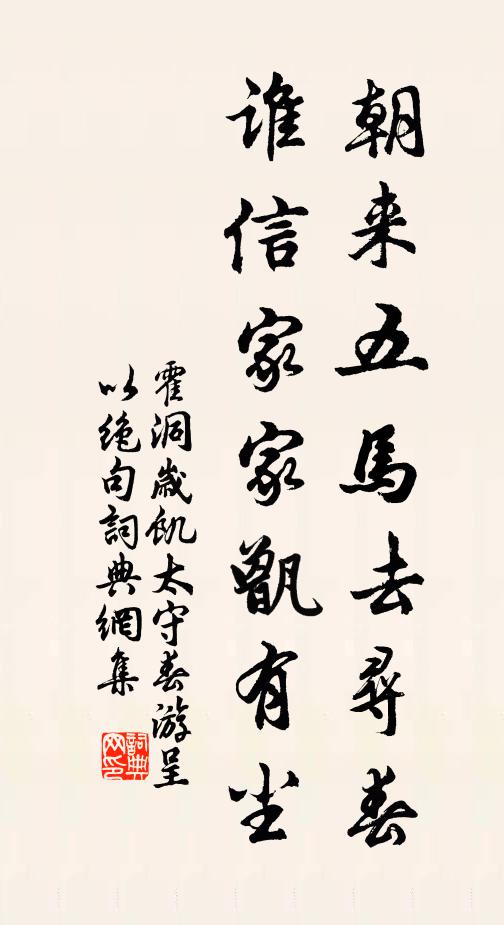 朝来五馬去尋春
谁信家家甑有尘
霍洞歲飢太守春游呈
以絶句詞典網集
詞典网印